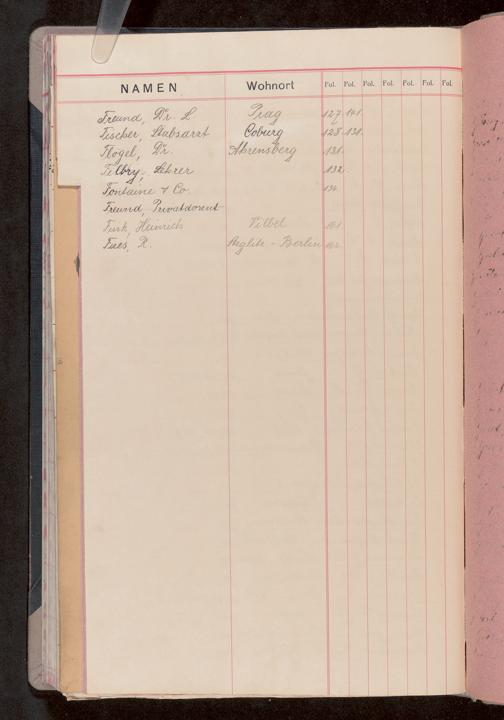 NAMEN Wohnort Fol. Fol. Fol. Fol. Fol. Fol. Fol.
Freund, Dr. L Prag 127. 141.
Fischer, Stabsarzt Coburg 128. 131.
Flogel, Dr. Ahrensberg 131.
Lehrer 132.
Fontaine & Co. 134
Freund, Privatdozent
Turk, Heinrich Vilbel 161.
R. Steglitz - Berlin